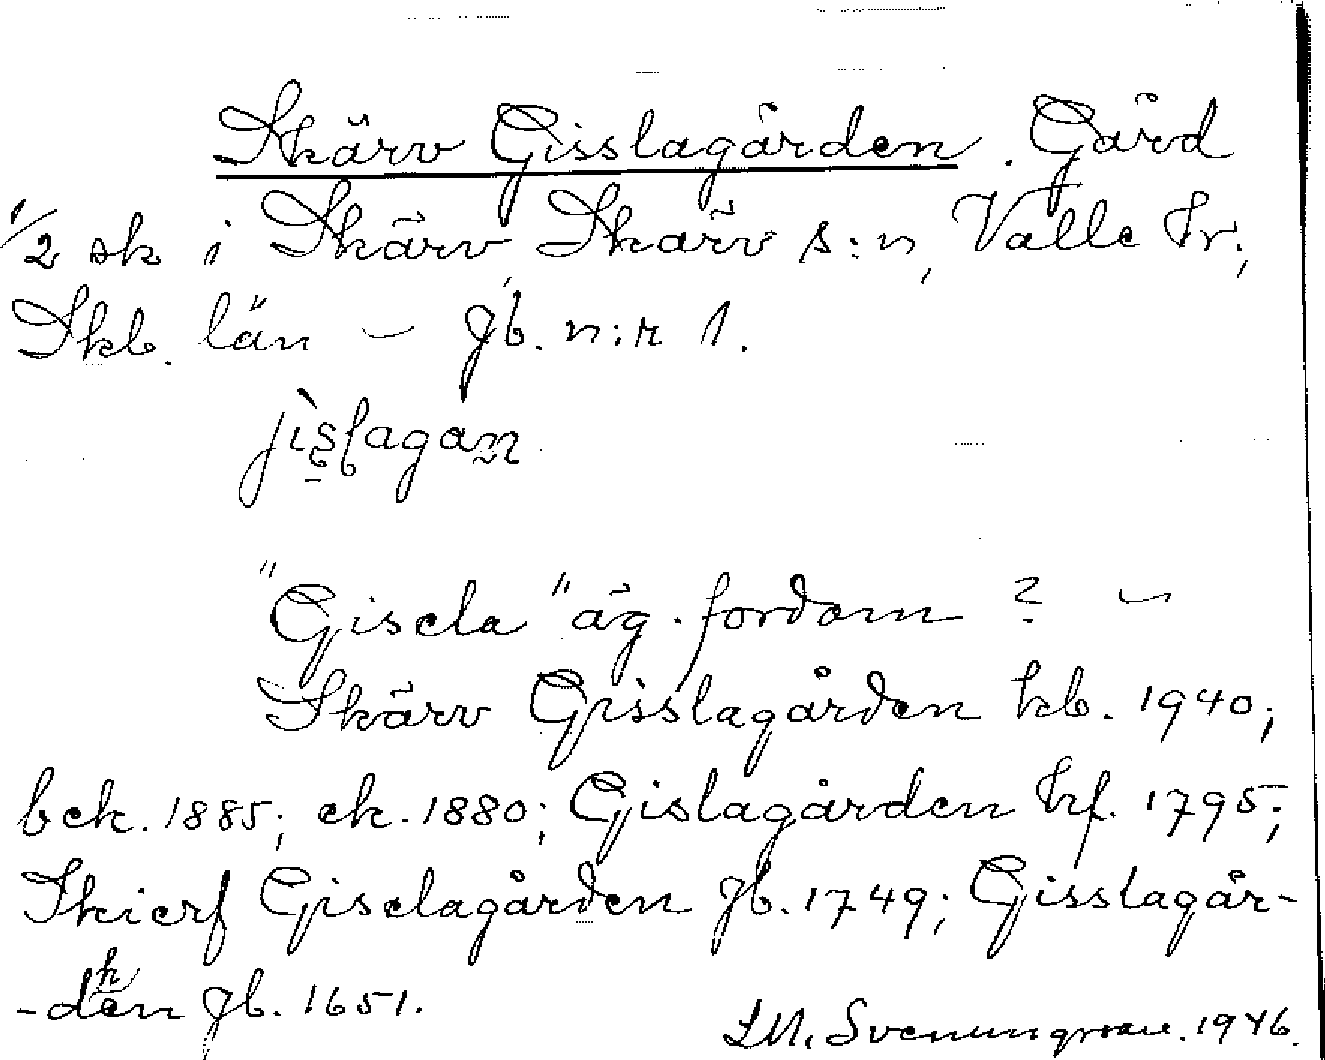 Skärv Gisslagården. Gård
1/2 sk i Skärv Skärv s:n, Valle hr,
Skb. län – Jb. n:r 1.
"Gisela" äg. fordom? –
Skärv Gisslagården kb. 1940;
bek. 1885; ek. 1880; Gislagården hf. 1795;
Skierf Giselagården Jb. 1749; Gisslagår-
-dhen Jb. 1651.
1946.